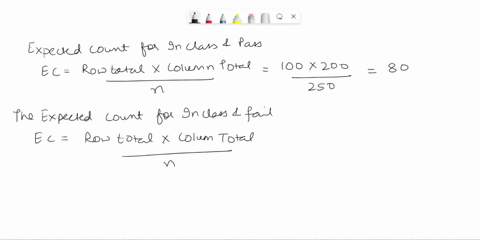 Expected count for In class & Pass
EC = Row total × Column Total / n = 100 × 200 / 250 = 80
The Expected count for In class & fail
EC = Row total × Colum Total / n